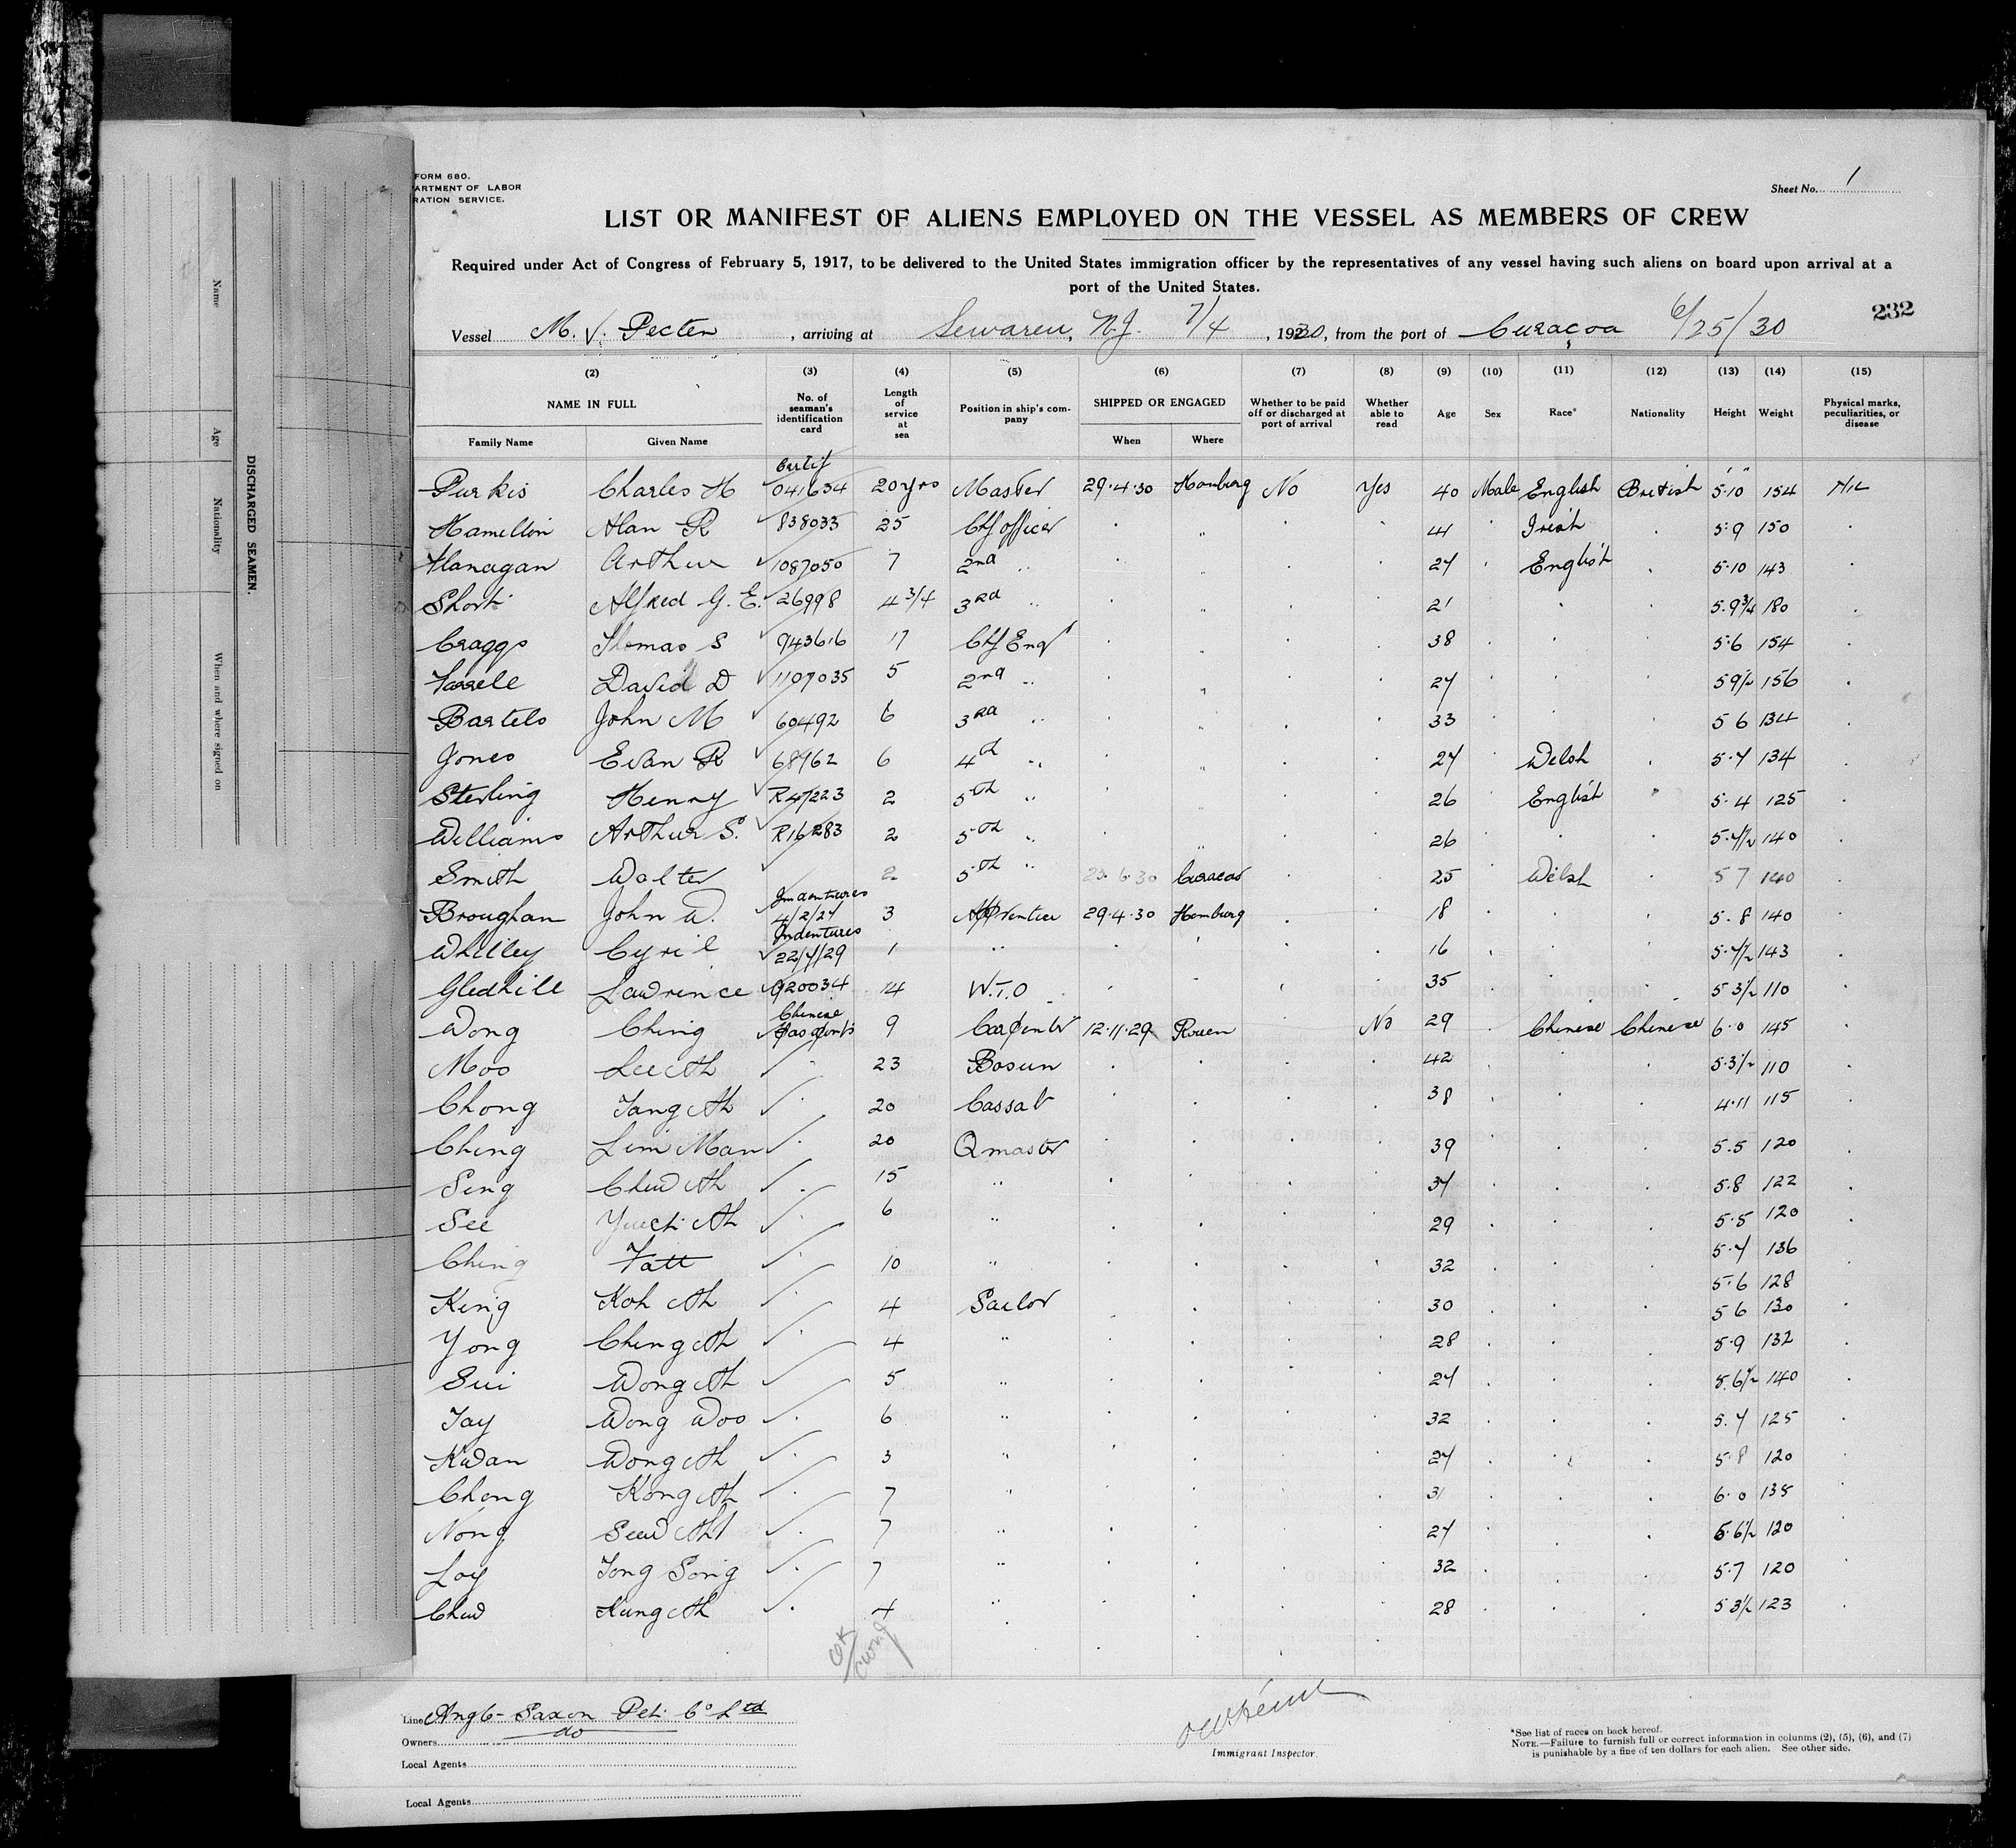 FORM 680.
ARTMENT OF LABOR
RATION SERVICE.
Sheet No. 1
LIST OR MANIFEST OF ALIENS EMPLOYED ON THE VESSEL AS MEMBERS OF CREW
Required under Act of Congress of February 5, 1917, to be delivered to the United States immigration officer by the representatives of any vessel having such aliens on board upon arrival at a
port of the United States.
232
Vessel M. V. Pecten, arriving at Sewaren, N.J. 7/4, 1930, from the port of Curaçoa 6/25/30
(2) (3) (4) (5) (6) (7) (8) (9) (10) (11) (12) (13) (14) (15)
NAME IN FULL No. of seaman's identification card Length of service at sea Position in ship's company SHIPPED OR ENGAGED Whether to be paid off or discharged at port of arrival Whether able to read Age Sex Race* Nationality Height Weight Physical marks, peculiarities, or disease
Family Name Given Name When Where
Certif
Purkis Charles H 041634 20 yrs Master 29.4.30 Hamburg No Yes 40 Male English British 5'.10" 154 NIL
Hamilton Alan R 838033 25 Chf officer " 41 Irish 5.9 150
Flanagan Arthur 1087050 7 2nd " 27 English 5.10 143
Short Alfred G. E. 26998 4 3/4 3rd " 21 5.9 3/4 180
Craggs Thomas S 943616 17 Chf Engr 38 5.6 154
Farrell David D 1107035 5 2nd " 27 5 9 1/2 156
Bartels John M 60492 6 3rd " 33 5 6 134
Jones Evan R 68962 6 4th " 27 Welsh 5.7 134
Sterling Henry R47223 2 5th " 26 English 5.4 125
Williams Arthur S. R16283 2 5th " 26 5.7 1/2 140
Smith Walter 2 5th " 23.6.30 Curacao 25 Welsh 5 7 140
Broughan John W. Indentures 4/2/27 3 Apprentice 29.4.30 Hamburg 18 5.8 140
Whilley Cyril Indentures 22/7/29 1 " 16 5.7 1/2 143
Gledhill Lawrence 920034 14 W.T.O 35 5 3 1/2 110
Wong Ching Chinese Passports 9 Carpenter 12.11.29 Rouen No 29 Chinese Chinese 6.0 145
Moo Lee Ah 23 Bosun 42 5.3 1/2 110
Chong Tang Ah 20 Cassab 38 4.11 115
Ching Lim Man 20 Qmaster 39 5.5 120
Seng Chew Ah 15 " 37 5.8 122
See Ah 6 " 29 5.5 120
Ching Fatt 10 " 32 5.7 136
5.6 128
King Koh Ah 4 Sailor 30 5 6 130
Yong Ching Ah 4 " 28 5.9 132
Sui Wong Ah 5 " 27 5.6 1/2 140
Tay Wong Woo 6 " 32 5.7 125
Kwan Wong Ah 3 " 27 5.8 120
Chong Kong Ah 7 " 31 6.0 135
Nong Seew Ah 7 " 27 5.6 1/2 120
Loy Tong Song 7 " 32 5.7 120
Chew Kung Ah 4 " 28 5 3 1/2 123
OK
Line Anglo-Saxon Pet. Co Ltd
Owners do
Local Agents
Local Agents
Immigrant Inspector.
*See list of races on back hereof.
NOTE.—Failure to furnish full or correct information in columns (2), (5), (6), and (7)
is punishable by a fine of ten dollars for each alien. See other side.
DISCHARGED SEAMEN.
Name
Age
Nationality
When and where signed on